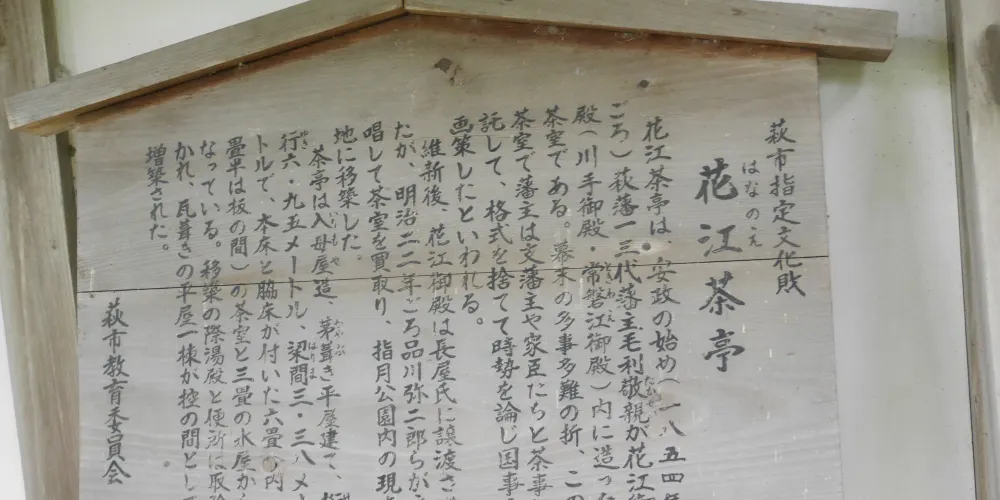 萩市指定文化財
はなのえ
花江茶亭
花江茶亭は、安政の始め(一八五四年
ごろ)萩藩一三代藩主毛利敬親が花江御
殿(川手御殿・常磐江御殿)内に造った
茶室である。幕末の多事多難の折、この
茶室で藩主は支藩主や家臣たちと茶事
託して、格式を捨てて時勢を論じ国事
画策したといわれる。
維新後、花江御殿は長屋氏に譲渡さ
たが、明治二二年ごろ品川弥二郎らが
唱して茶室を買取り、指月公園内の現
地に移築した。
茶亭は入母屋造、茅葺き平屋建て、
行六・九五メートル、梁間三・三八メー
トルで、本床と脇床が付いた六畳(内
畳半は板の間)の茶室と三畳の水屋か
なっている。移築の際湯殿と便所は取
かれ、瓦葺きの平屋一棟が控の間とし
増築された。
萩市教育委員会